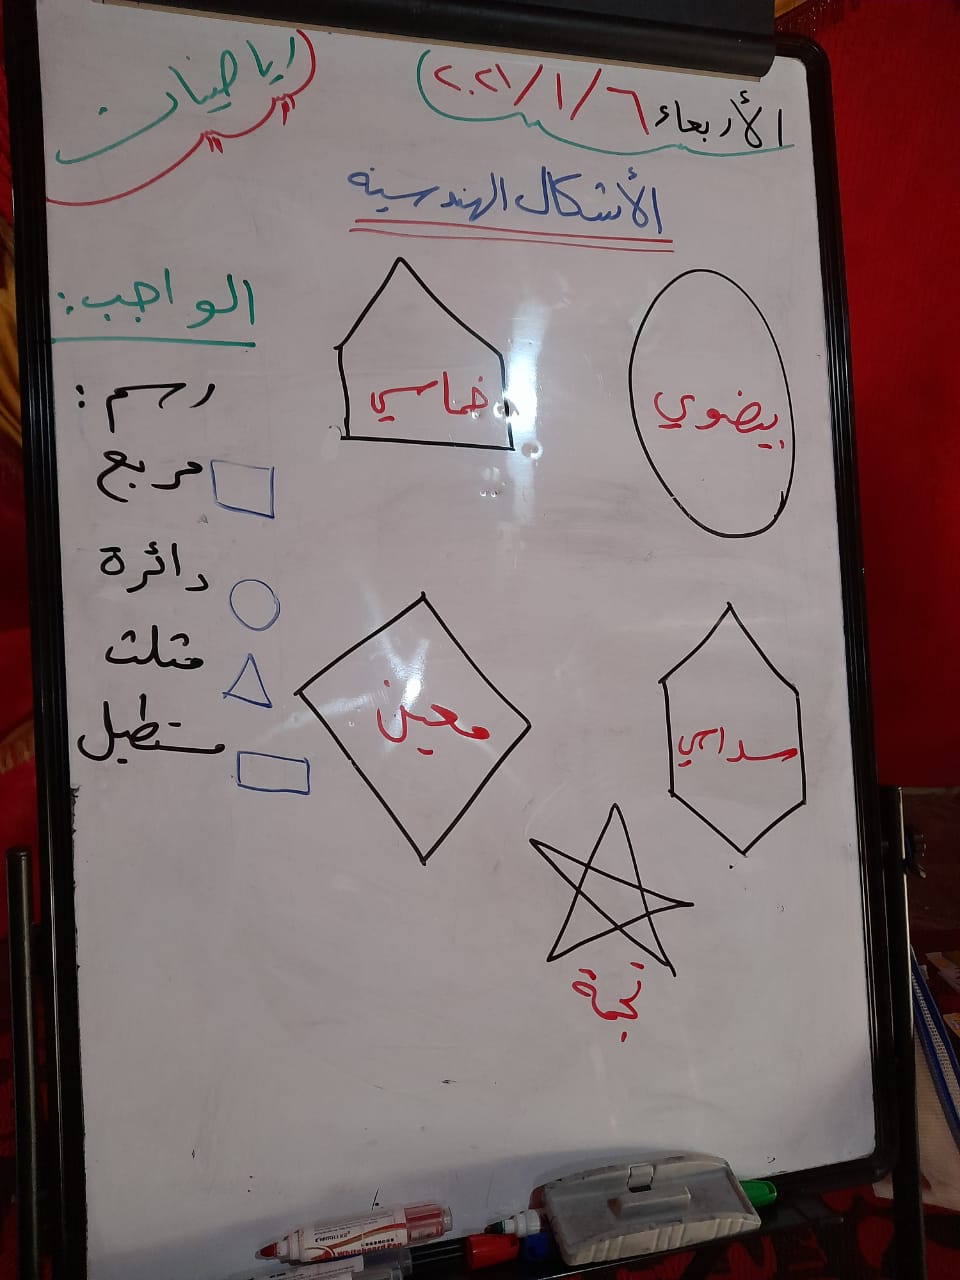 الأربعاء ٢٠٢١/١/٦
رياضيات
الأشكال الهندسية
بيضوي
خماسي
سداسي
معين
نجمة
الواجب:
رسم:
مربع
دائرة
مثلث
مستطيل
Whiteboard Pen